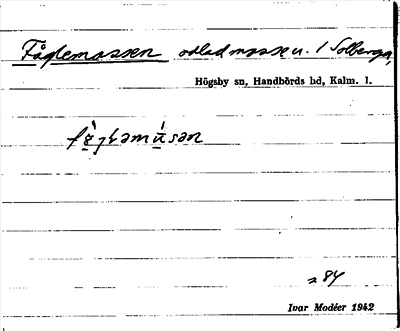 Fåglemossen odlad mosse u. / Solberga,
Högsby sn, Handbörds hd, Kalm. l.
84
Ivar Modéer 1942